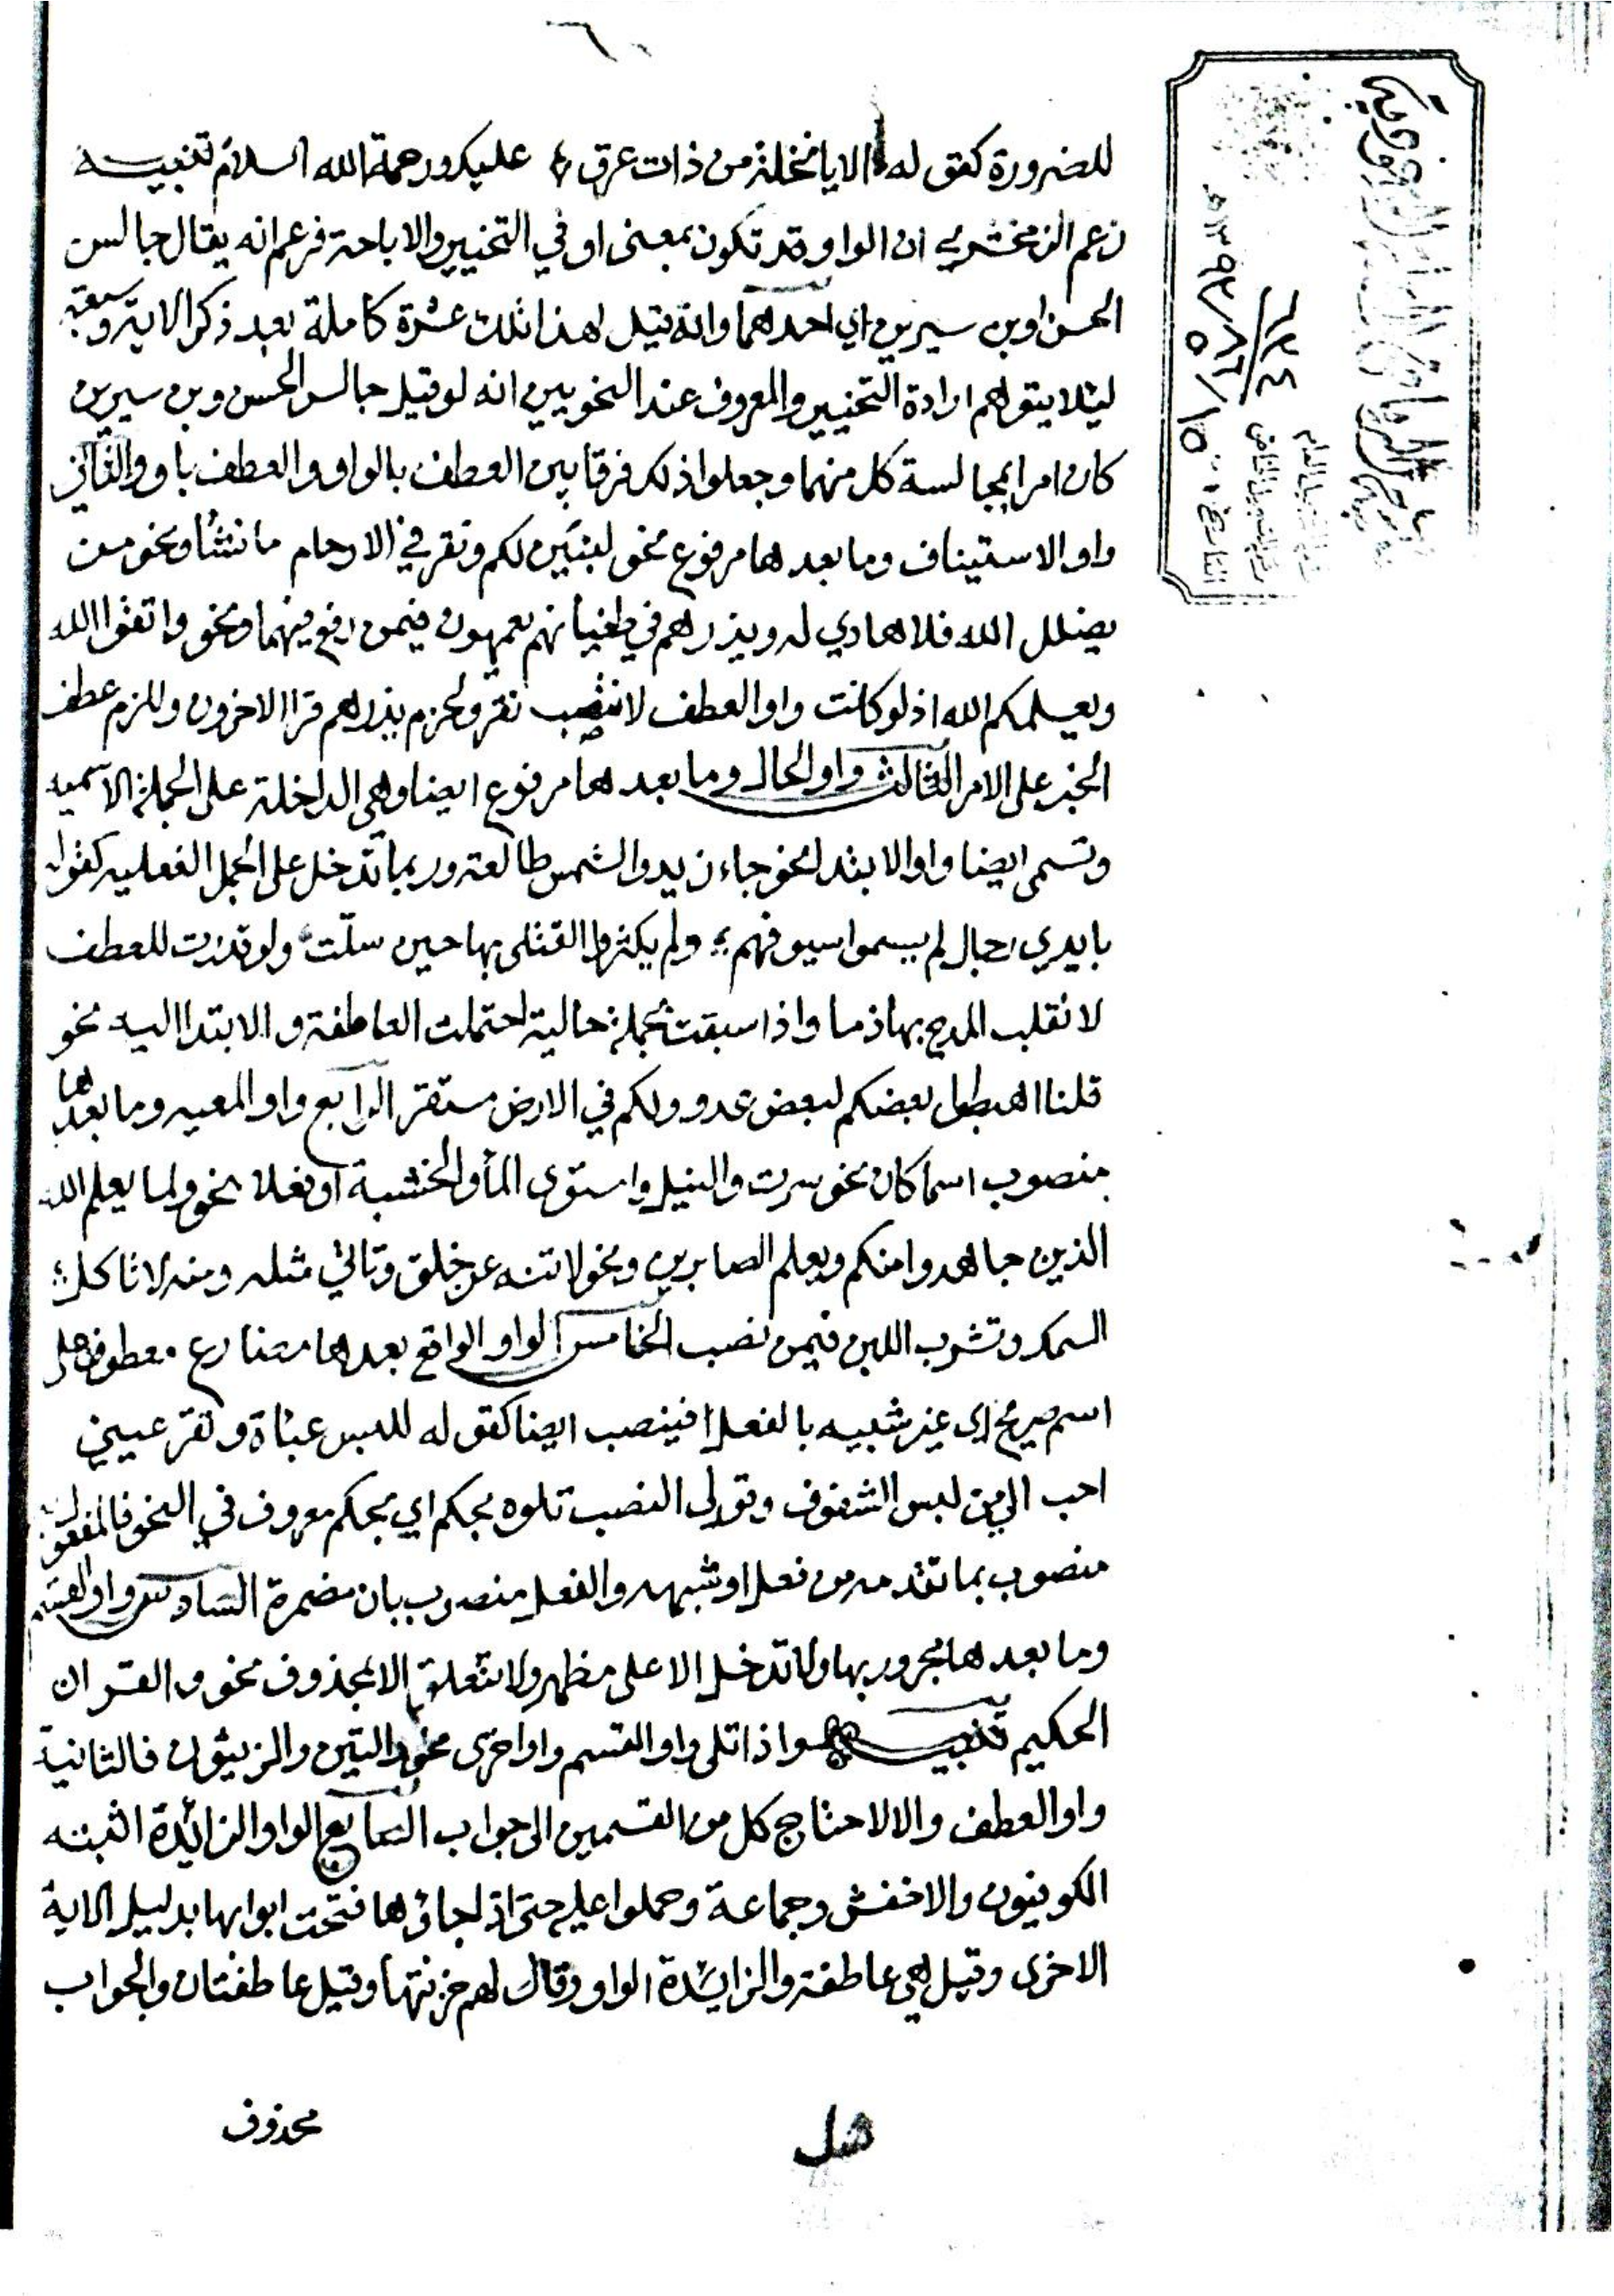 للضرورة كقوله الا يا نخلة من ذات عرق عليك ورحمة الله السلام تنبيه
زعم الزمخشري ان الواو قد تكون بمعنى او في التخيير والاباحة فزعم انه يقال جالس
الحسن او بن سيرين اي احدهما وانه قيل لهذا تلك عشرة كاملة بعد ذكر الاية وسبعة
ليئلا يتوهم ارادة التخيير والمعروف عند النحويين انه لو قيل جالس الحسن وبن سيرين
كان امرا بمجالسة كل منهما وجعلوا ذلك فرقا بين العطف بالواو والعطف باو والثاني
واو الاستيناف وما بعدها مرفوع نحو لنبين لكم ونقر في الارحام ما نشأ ونحو من
يضلل الله فلا هادي له ويذرهم في طغيانهم يعمهون فيمن رفع فيهما ونحو واتقوا الله
ويعلمكم الله اذ لو كانت واو العطف لانتصب نقر ولجزم يذرهم قرا الاخرون وللزم عطف
الخبر على الامر الثالث واو الحال وما بعدها مرفوع ايضا وهي الداخلة على الجملة الاسميه
وتسمى ايضا واو الابتدا نحو جاء زيد والشمس طالعة وربما تدخل على الجمل الفعليه كقوله
بايدي رجال لم يسموا سيوفهم ولم يكثروا القتلى بها حين سلّت ولو قدرت للعطف
لانقلب المدح بها ذما واذا سبقت بجملة حالية احتملت العاطفة والابتدا اليه نحو
قلنا اهبطوا بعضكم لبعض عدو ولكم في الارض مستقر الرابع واو المعيه وما بعدها
منصوب اسما كان نحو سرت والنيل واستوى المأ والخشبة او فعلا نحو ولما يعلم الله
الذين جاهدوا منكم ويعلم الصابرين ونحو لا تنه عن خلق وتأتي مثله ومنه لا تاكل
السمك وتشرب اللبن فيمن نصب الخامس الواو الواقع بعدها مضارع معطوف على
اسم صريح اي غير شبيه بالفعل فينصب ايضا كقوله للبس عباة وتقر عيني
احب الي من لبس الشفوف وقولي النصب تلوه بحكم اي بحكم معروف في النحو فالمفعول
منصوب بما تقدمه من فعل او شبهه والفعل منصوب بان مضمرة السادس واو القسم
وما بعدها مجرور بها ولا تدخل الا على مظهر ولا تتعلق الا بمحذوف نحو والقران
الحكيم تنبيه واذا تلى واو القسم واو اخرى نحو والتين والزيتون فالثانية
واو العطف والا لاحتاج كل من القسمين الى جواب السابع الواو الزائدة اثبته
الكوفيون والاخفش وجماعة وحملوا عليه حتى اذا جاؤها فتحت ابوابها بدليل الاية
الاخرى وقيل هي عاطفة والزايدة الواو وقال لهم خزنتها وقيل عاطفتان والجواب
محذوف
هل